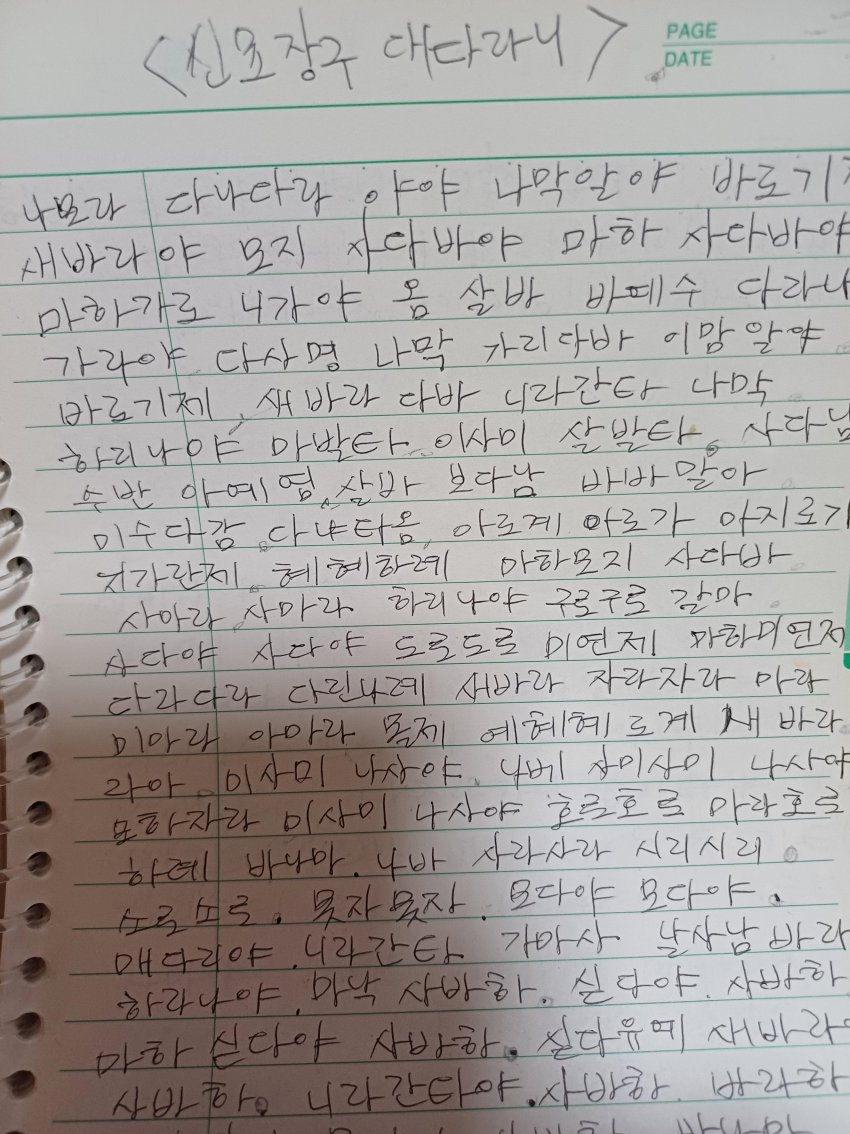 <신묘장구 대다라니>
PAGE
DATE
나모라 다나다라 야야 나막알야 바로기
새바라야 모지 사다바야 마하 사다바야
마하가로 니가야 옴 살바 바예수 다라나
가라야 다사명 나막 가리다바 이맘알야
바로기제 새바라 다바 니라간타 나막
하리나야 마발타 이사미 살발타 사다남
수반 아예염 살바 보다남 바바말아
미수다감 다냐타옴 아로계 아로가 아지로가
지가란제 혜혜하례 마하모지 사다바
사마라 사마라 하리나야 구로구로 갈마
사다야 사다야 도로도로 미연제 마하미연제
다라다라 다린나례 새바라 자라자라 마라
미마라 아마라 몰제 예혜혜 로계 새바라
라아 이사미 나사야 나베 사미사미 나사야
모하자라 미사미 나사야 호로호로 마라호로
하례 바나마 나바 사라사라 시리시리
소로소로. 못자못자. 모다야 모다야.
매다리야. 니라간타 가마사 날사남 바라
하라나야. 마낙 사바하. 싣다야. 사바하
마하 싣다야 사바하. 싣다유예 새바라
사바하. 니라간타야. 사바하. 바라하